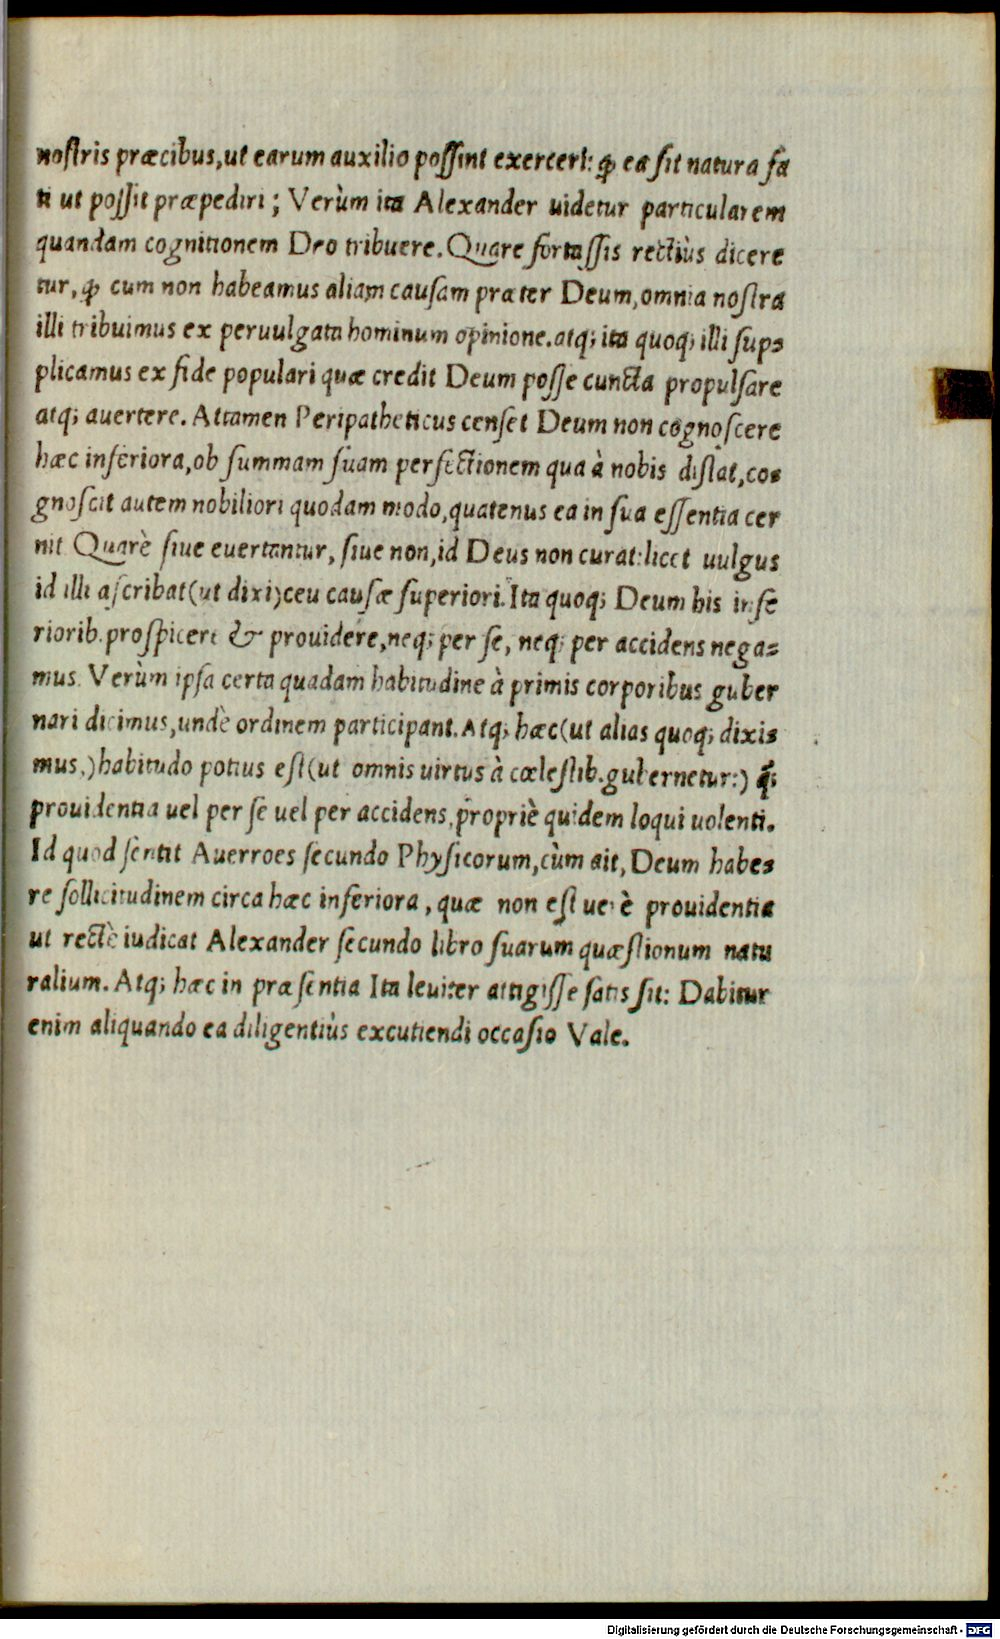 noſtris præcibus,ut earum auxilio poſſint exerceri: ꝙ ea ſit natura fa
ti ut poſſit præpediri; Verùm ita Alexander uidetur particularem
quandam cognitionem Deo tribuere. Quare fortaſſis rectiùs dicere
tur, ꝙ cum non habeamus aliam cauſam præter Deum, omnia noſtra
illi tribuimus ex peruulgata hominum opinione.atq; ita quoq; illi ſup⸗
plicamus ex fide populari quæ credit Deum poſſe cuncta propulſare
atq; auertere. Attamen Peripatheticus cenſet Deum non cognoſcere
hæc inferiora,ob ſummam ſuam perfectionem qua à nobis diſtat,co⸗
gnoſcit autem nobiliori quodam modo,quatenus ea in ſua eſſentia cer
nit Quarè ſiue euertantur, ſiue non,id Deus non curat:licet uulgus
id illi aſcribat(ut dixi)ceu cauſæ ſuperiori.Ita quoq; Deum his infe
riorib.proſpicere & prouidere,neq; per ſe, neq; per accidens nega⸗
mus. Verùm ipſa certa quadam habitudine à primis corporibus guber
nari dicimus,undè ordinem participant.Atq; hæc(ut alias quoq; dixi⸗
mus,)habitudo potius eſt(ut omnis uirtus à cœleſtib.gubernetur:) ꝗ̃;
prouidentia uel per ſe uel per accidens,propriè quidem loqui uolenti.
Id quod ſentit Auerroes ſecundo Phyſicorum,cùm ait, Deum habe⸗
re ſollicitudinem circa hæc inferiora, quæ non eſt uerè prouidentia
ut rectè iudicat Alexander ſecundo libro ſuarum quæſtionum natu
ralium. Atq; hæc in præſentia Ita leuiter attigiſſe ſatis ſit: Dabitur
enim aliquando ea diligentiùs excutiendi occaſio Vale.
Digitalisierung gefördert durch die Deutsche Forschungsgemeinschaft - DFG